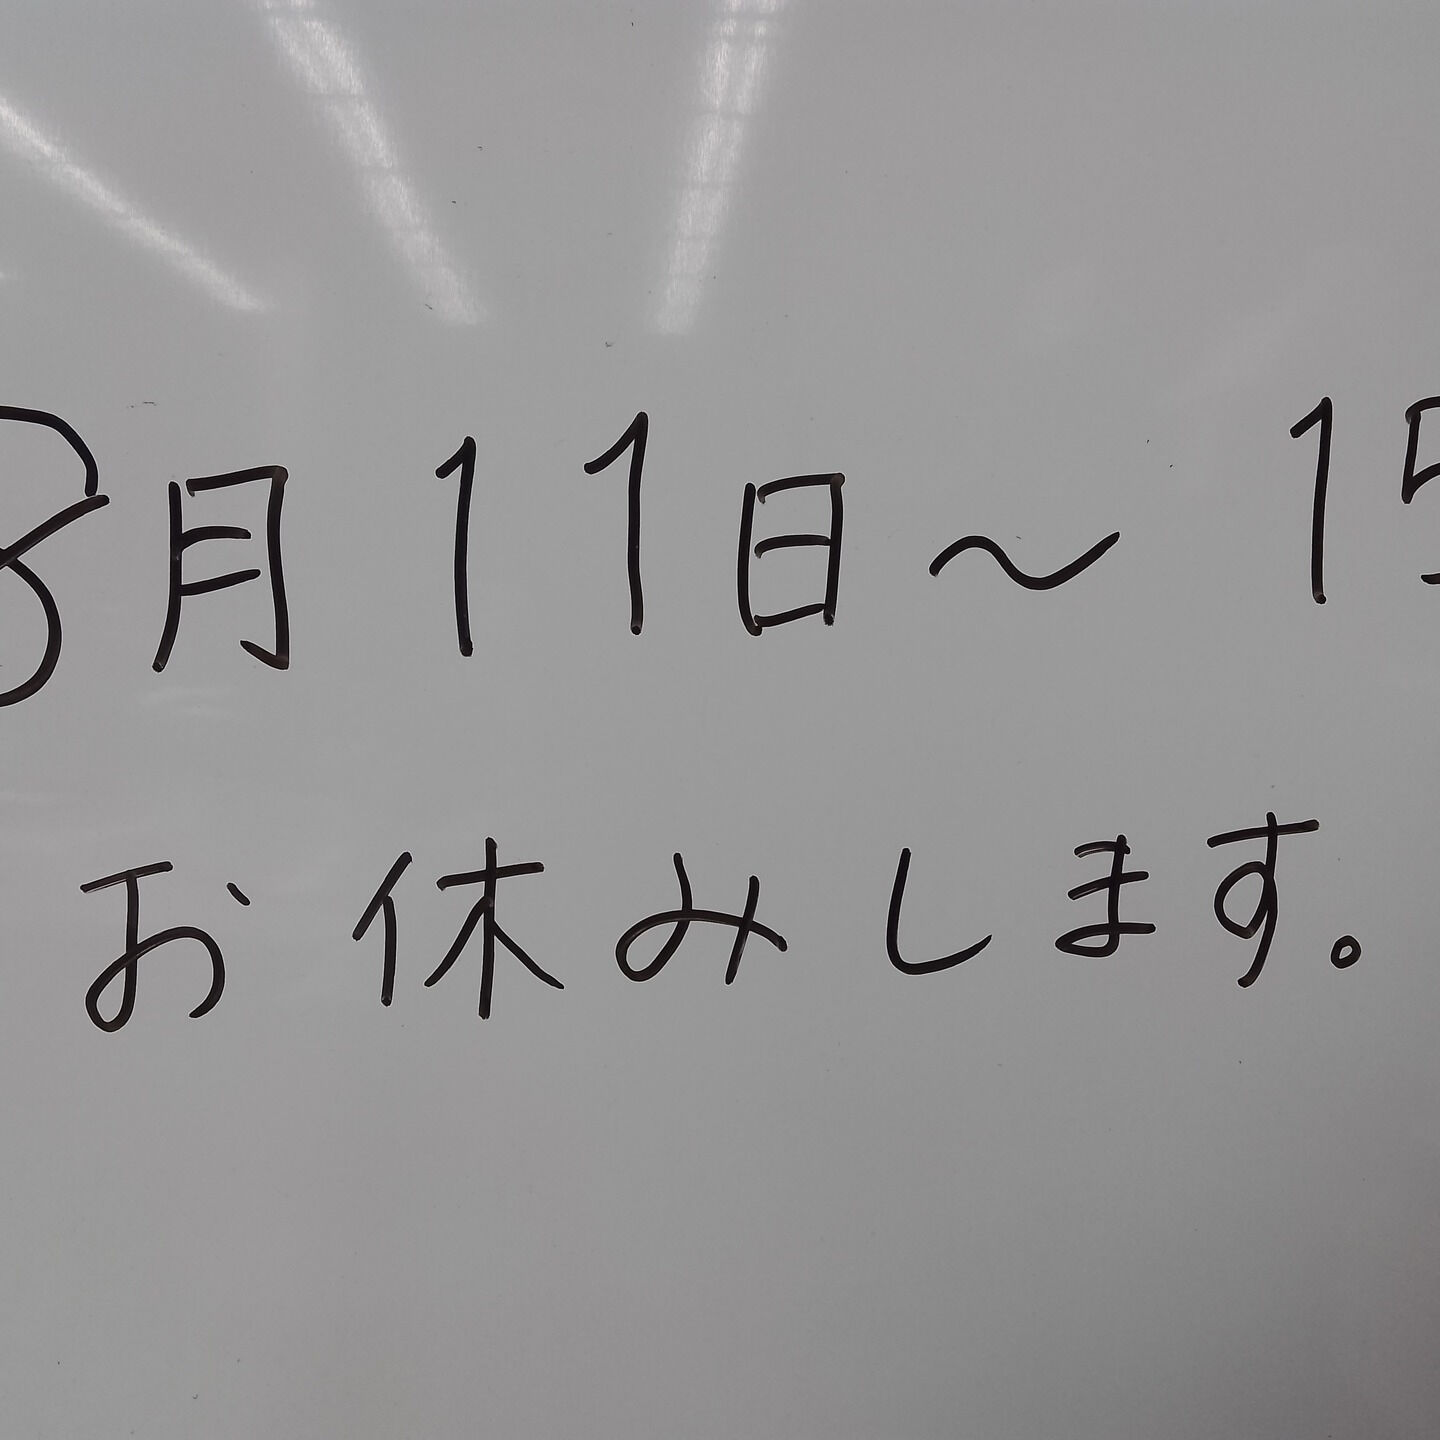 8月11日～15
お休みします。